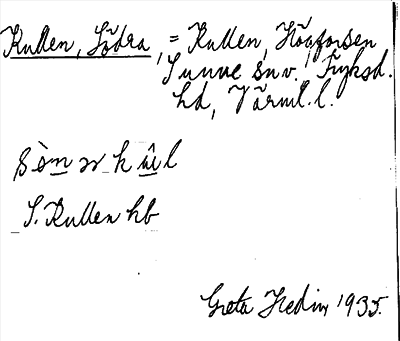 Kullen, Södra, = Kullen, Högforsen
Sunne sn v. Fryksd.
hd, Värml. l.
S. Kullen hb
Greta Hedin, 1935.